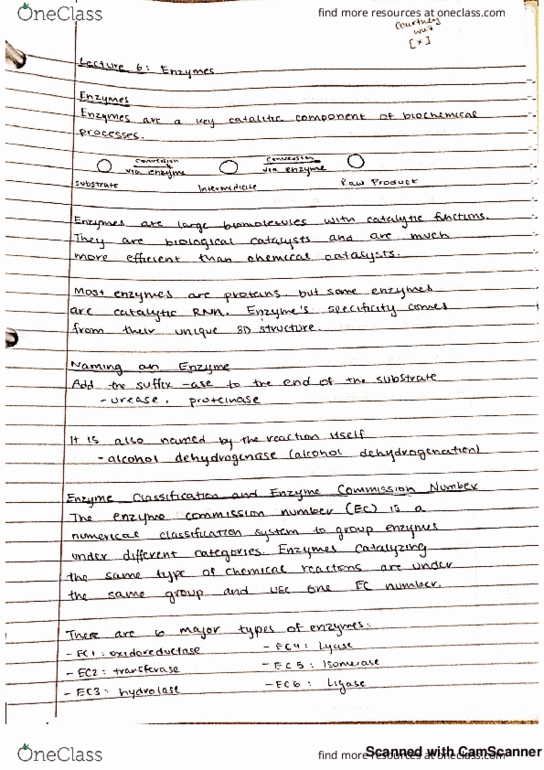 OneClass
find more resources at oneclass.com
Courtney
[x]
Lecture 6: Enzymes
Enzymes
Enzymes are a key catalitic component of biochemical
processes.
conversion via enzyme conversion via enzyme
Substrate Intermediate Raw Product
Enzymes are large biomolecules with catalytic functions.
They are biological catalysts and are much
more efficient than chemical catalysts.
Most enzymes are proteins but some enzymes
are catalytic RNA. Enzyme's specificity comes
from their unique 3D structure.
Naming an Enzyme
Add the suffix -ase to the end of the substrate
- urease, proteinase
It is also named by the reaction itself
- alcohol dehydrogenase (alcohol dehydrogenation)
Enzyme Classification and Enzyme Commission Number
The enzyme commission number (EC) is a
numerical classification system to group enzymes
under different categories. Enzymes catalyzing
the same type of chemical reactions are under
the same group and use one EC number.
There are 6 major types of enzymes:
- EC1: oxidoreductase - EC4: Lyase
- EC2: transferase - EC5: Isomerase
- EC3: hydrolase - EC6: Ligase
OneClass
find more resources at oneclass.com
Scanned with CamScanner